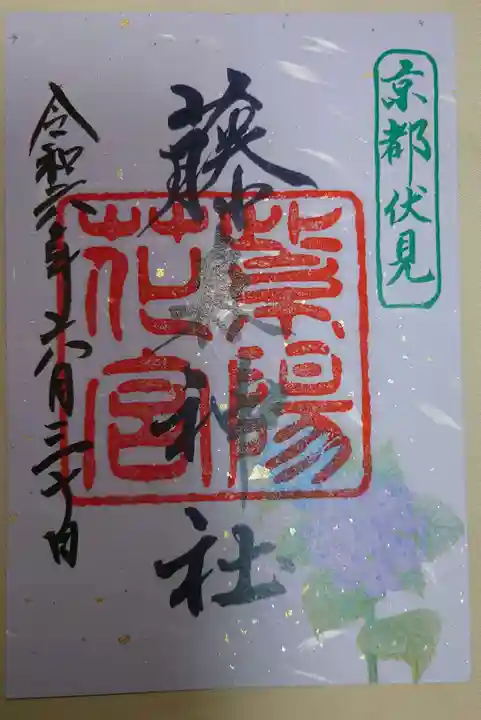 京都伏見
藤森神社
紫陽
花宮
令和六年六月三十日